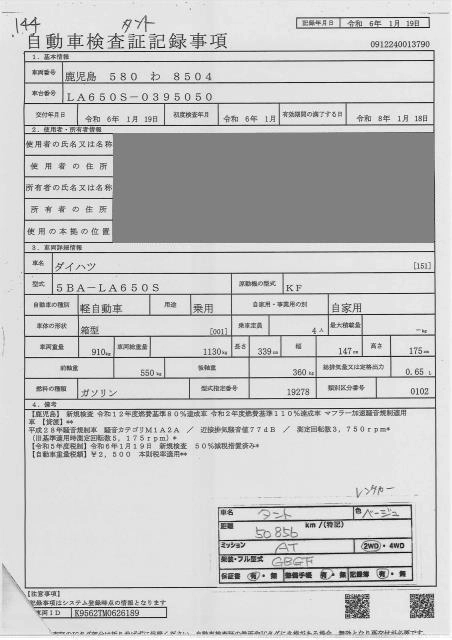 144 タント
記録年月日 令和 6年 1月 19日
自動車検査証記録事項 0912240013790
1. 基本情報
車両番号 鹿児島 580 わ 8504
車台番号 LA650S-0395050
交付年月日 令和 6年 1月 19日 初度検査年月 令和 6年 1月 有効期間の満了する日 令和 8年 1月 18日
2. 使用者・所有者情報
使用者の氏名又は名称
使用者の住所
所有者の氏名又は名称
所有者の住所
使用の本拠の位置
3. 車両詳細情報
車名 ダイハツ [151]
型式 5BA-LA650S 原動機の型式 KF
自動車の種別 軽自動車 用途 乗用 自家用・事業用の別 自家用
車体の形状 箱型 [001] 乗車定員 4人 最大積載量 -kg
車両重量 910kg 車両総重量 1130kg 長さ 339cm 幅 147cm 高さ 175cm
前軸重 550kg 後軸重 360kg 総排気量又は定格出力 0.65 L
燃料の種類 ガソリン 型式指定番号 19278 類別区分番号 0102
4. 備考
【鹿児島】 新規検査 令和12年度燃費基準80%達成車 令和2年度燃費基準110%達成車 マフラー加速騒音規制適用
車 【貸渡】**
平成28年騒音規制車 騒音カテゴリM1A2A / 近接排気騒音値77dB / 測定回転数3,750rpm*
(旧基準適用時測定回転数5,175rpm)*
【令和5年度税制】令和6年1月19日 新規検査 50%減税措置済み*
【自動車重量税額】¥2,500 本則税率適用**
レンタカー
車名 タント 色 ベージュ
距離 50856 km/(特記)
ミッション AT 2WD・4WD
架装・フル型式 GBGF
保証書 有・無 整備手帳 有・無 記録簿 有・無
【注意事項】
記録事項はシステム登録時点の情報となります
車両ID K9562TM0626189